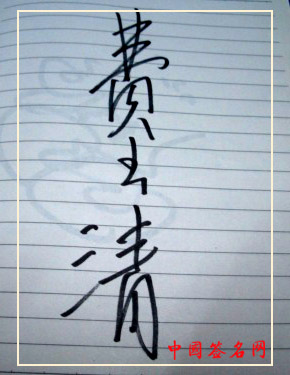 费玉清
中国签名网